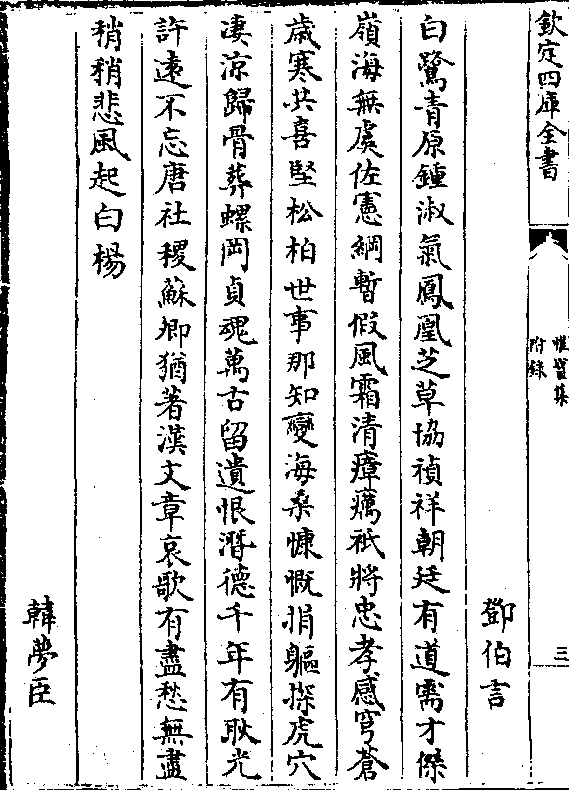 欽定四庫全書
惟實集
附録
三
鄧伯言
白鷺青原鍾淑氣鳳凰芝草協禎祥朝廷有道需才傑
嶺海無虞佐憲綱暫假風霜清瘴癘祇將忠孝感穹蒼
歲寒共喜堅松柏世事那知變海桑慷慨捐軀探虎穴
凄涼歸骨葬螺岡貞魂萬古留遺恨潛德千年有耿光
許遠不忘唐社稷蘇卿猶著漢文章哀歌有盡愁無盡
稍稍悲風起白楊
韓夢臣